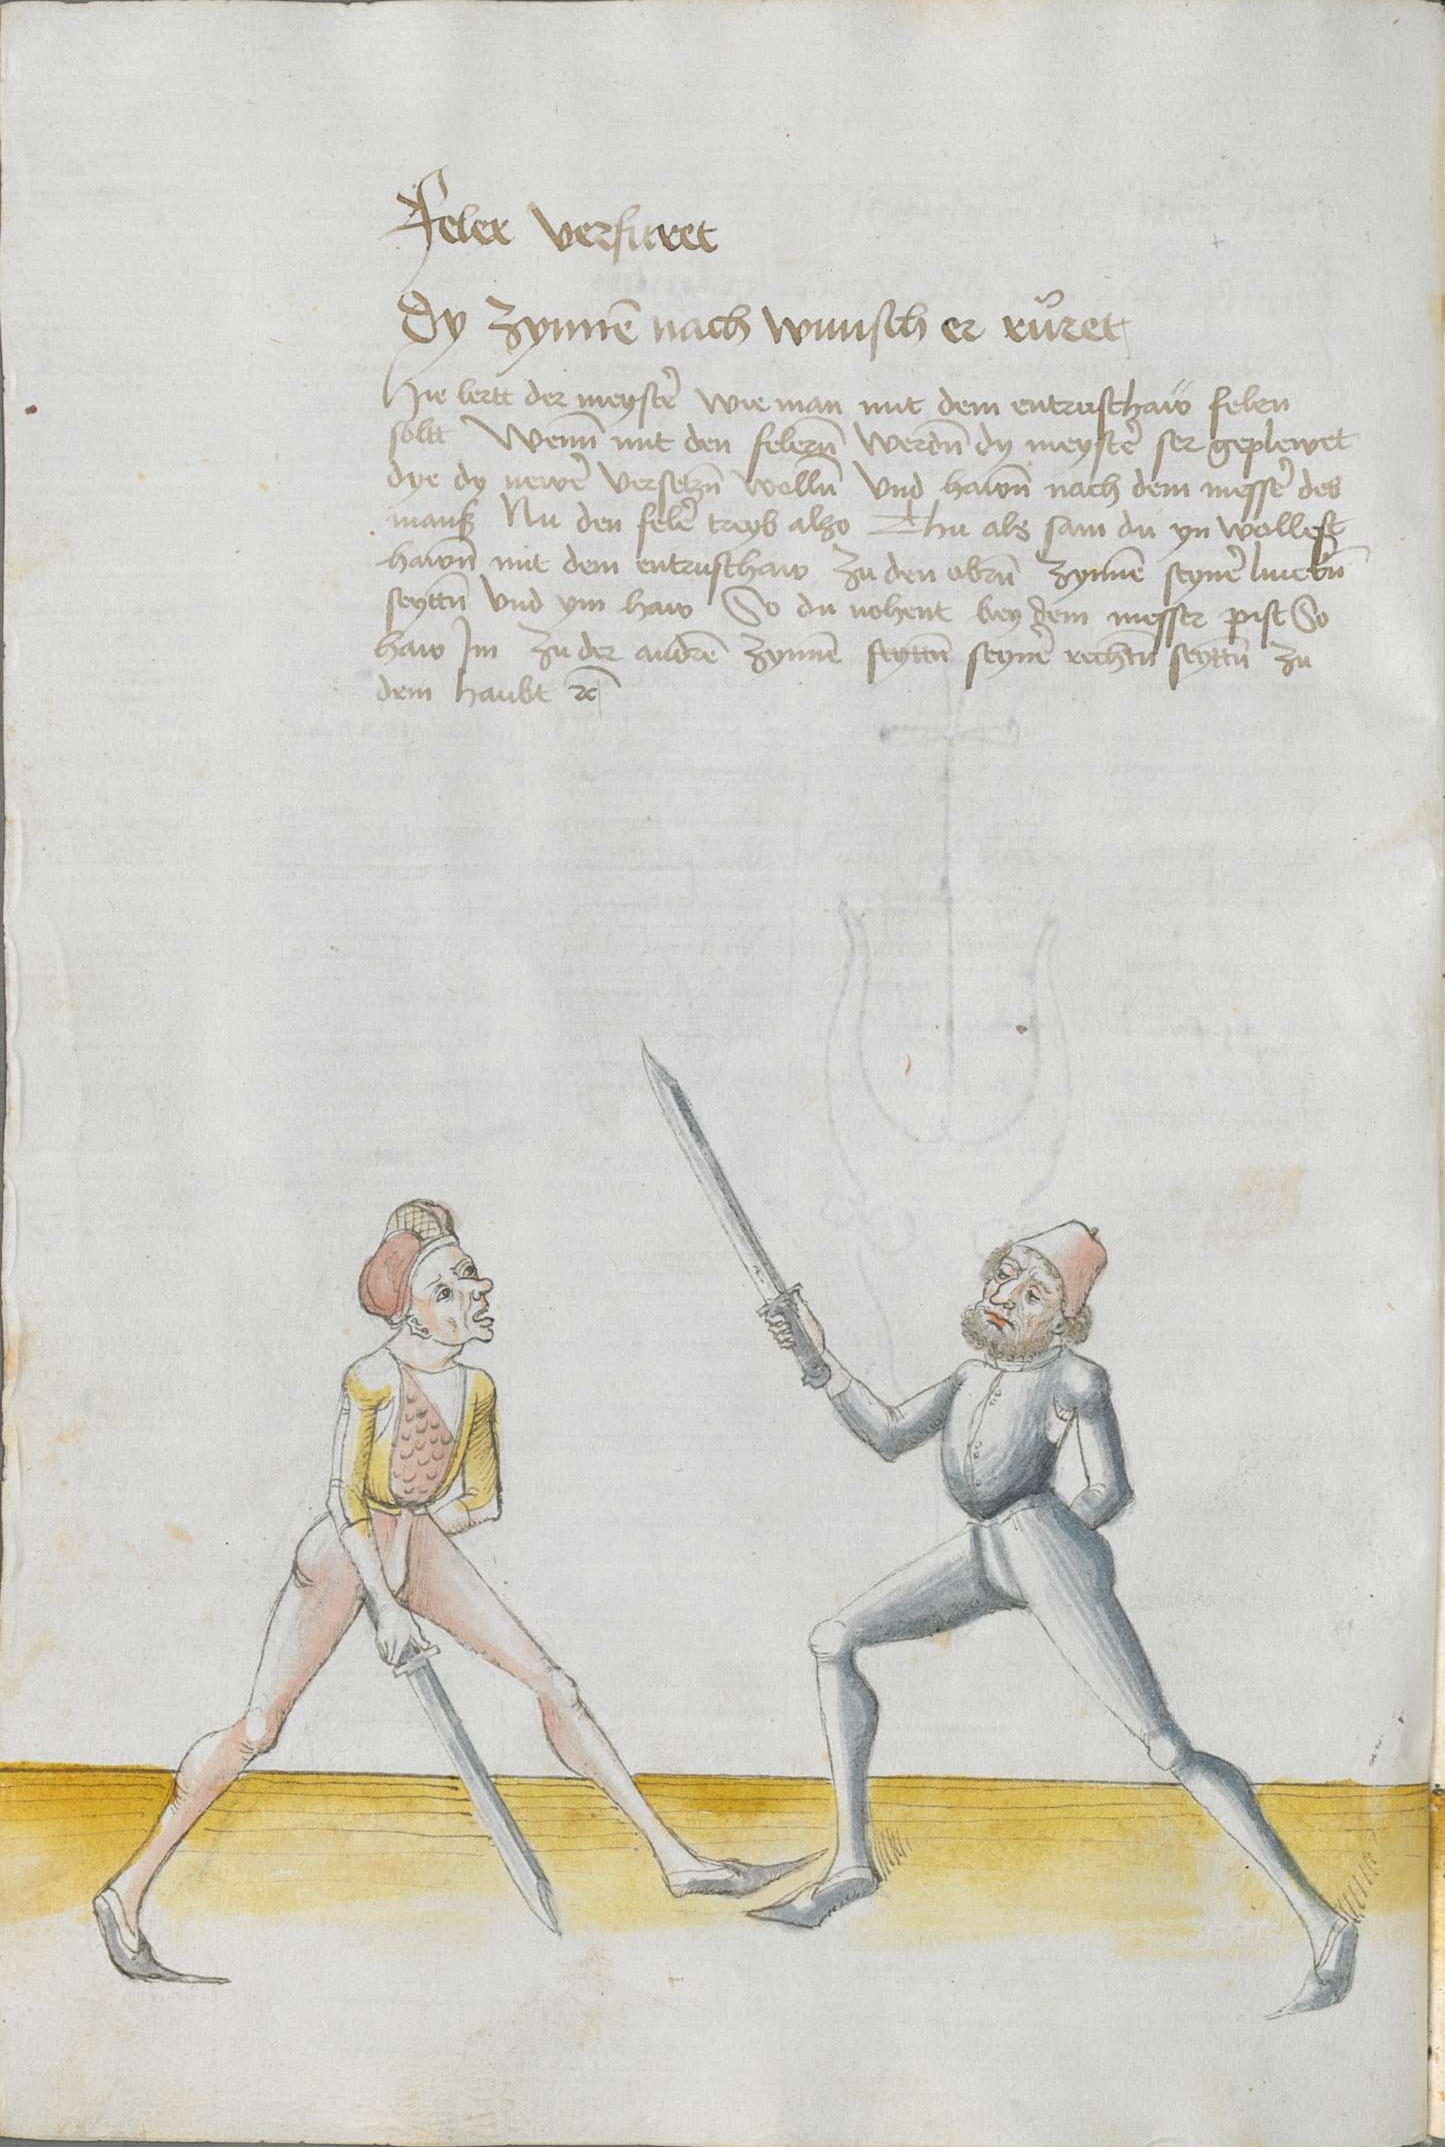 Feler verfuret
Dy zynnē nach wunsch er růret
Hie lertt der meystẻ wie man mit dem entrusthaw felen
soltt Wenn̄ mit den felerñ werdñ dy meystẻ ser geplewet
dye do newẻ versetzñ wollñ vnd hawñ nach dem messẻ des
manß Nu den felẻ treyb also Thu als sam du yn wollest
hawñ mit dem entrusthaw zu den obrñ zynnē seynẻ linckñ
seyttñ vnd ym haw So du nohent bey dem messer pist So
haw Im zu der andrē zynnē seyttñ seynẻ rechtñ seyttñ zu
dem haubt ⁊c̄